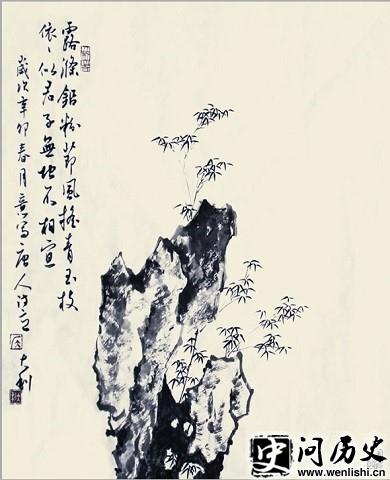 露滌鉛粉節風搖青玉枝
依〻似君子無地不相宜
歲次辛卯春月意写唐人诗意
史问历史
www.wenlishi.cn